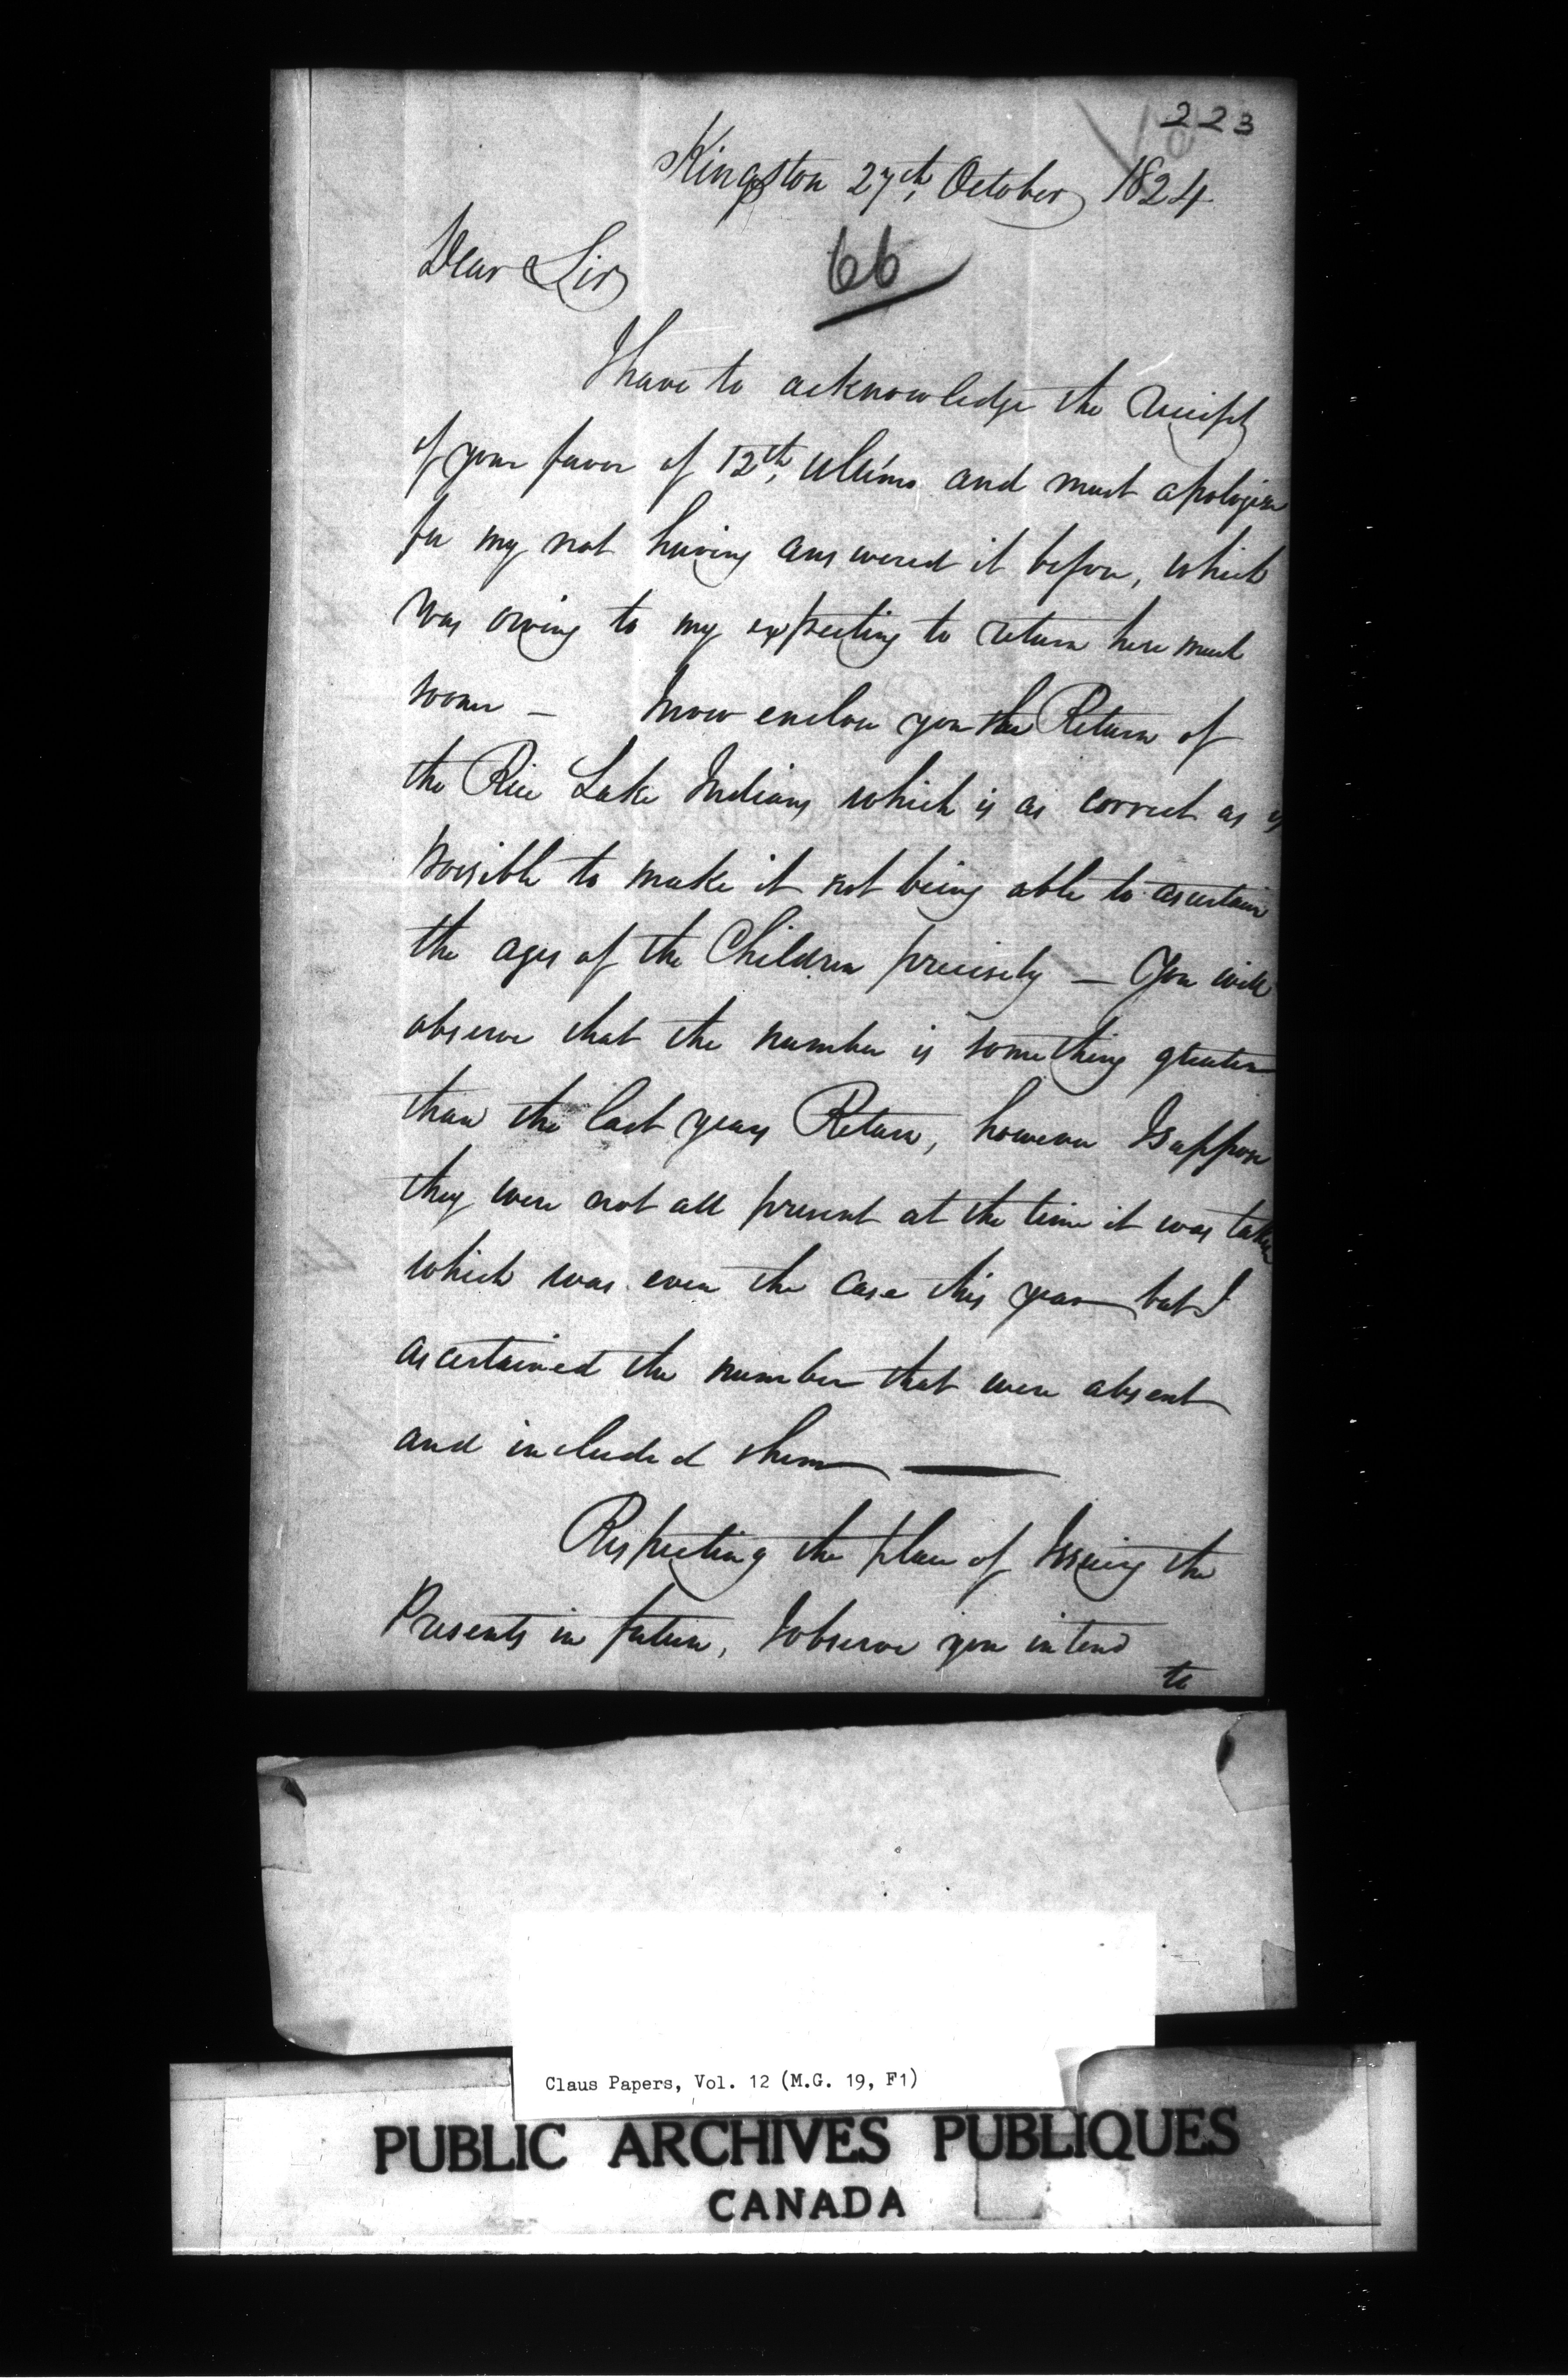 223
Kingston 27th, October 1824
66
Dear Sir
I have to acknowledge the receipt
of your favor of 12th, Ultimo and must apologise
for my not having answered it before, which
was owing to my expecting to return here much
sooner – I now enclose you the Return of
the Rice Lake Indians which is as correct as is
possible to make it not being able to ascertain
the ages of the Children precisely – You will
observe that the number is something greater
than the last years Return, however I suppose
they were not all present at the time it was taken
which was even the case this year but I
ascertained the number that were absent
and included them —
Respecting the place of Issuing the
Presents in future, I observe you intend
to
Claus Papers, Vol. 12 (M.G. 19, F1)
PUBLIC ARCHIVES PUBLIQUES
CANADA